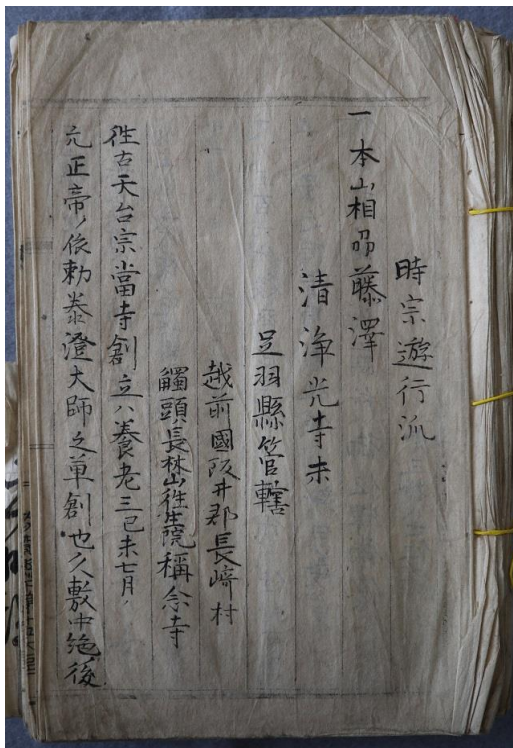 時宗遊行流
一本山相刕藤澤
清浄光寺末
足羽縣管轄
越前國阪井郡長﨑村
觸頭長林山徃生院稱念寺
徃古天台宗當寺創立ハ養老三己未七月ノ
元正帝ノ依勅泰澄大師之草創也久敷中絶後